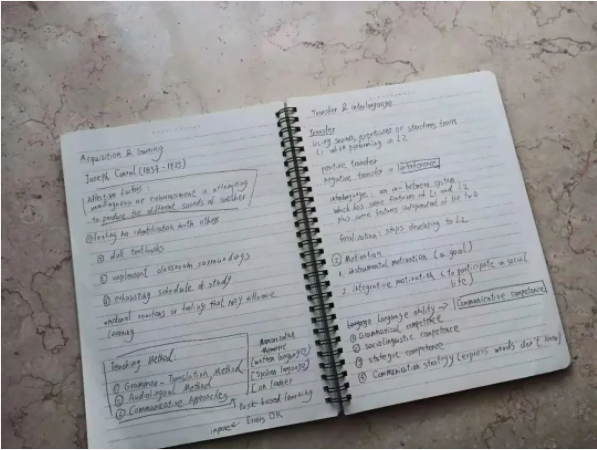 Acquisition & learning
Joseph Conrad (1857-1925)
Affective factors:
unwillingness or embarrassment in attempting
to produce the different sounds of another
feeling no identification with other
dull textbooks
unpleasant classroom surroundings
exhausting schedule of study
emotional reactions or feelings that may
learning
Teaching Method
① Grammar-Translation Method
② Audiolingual Method
③ Communicative Approaches
Task-based learning
written language
Spoken language
on learner
Errors OK
Transfer & interlanguage
Transfer
using sounds, expressions or structures from
L1 when performing in L2
positive transfer
negative transfer = interference
interlanguage: an in-between system
which has some features of L1 and L2
plus some features independent of the two
fossilization: stops developing to L2
Motivation
1. instrumental motivation (a goal)
2. integrative motivation (to participate in social
life)
language ability → Communicative competence
① Grammatical competence
② Sociolinguistic competence
③ strategic competence
④ Communication strategy (express words don't know)